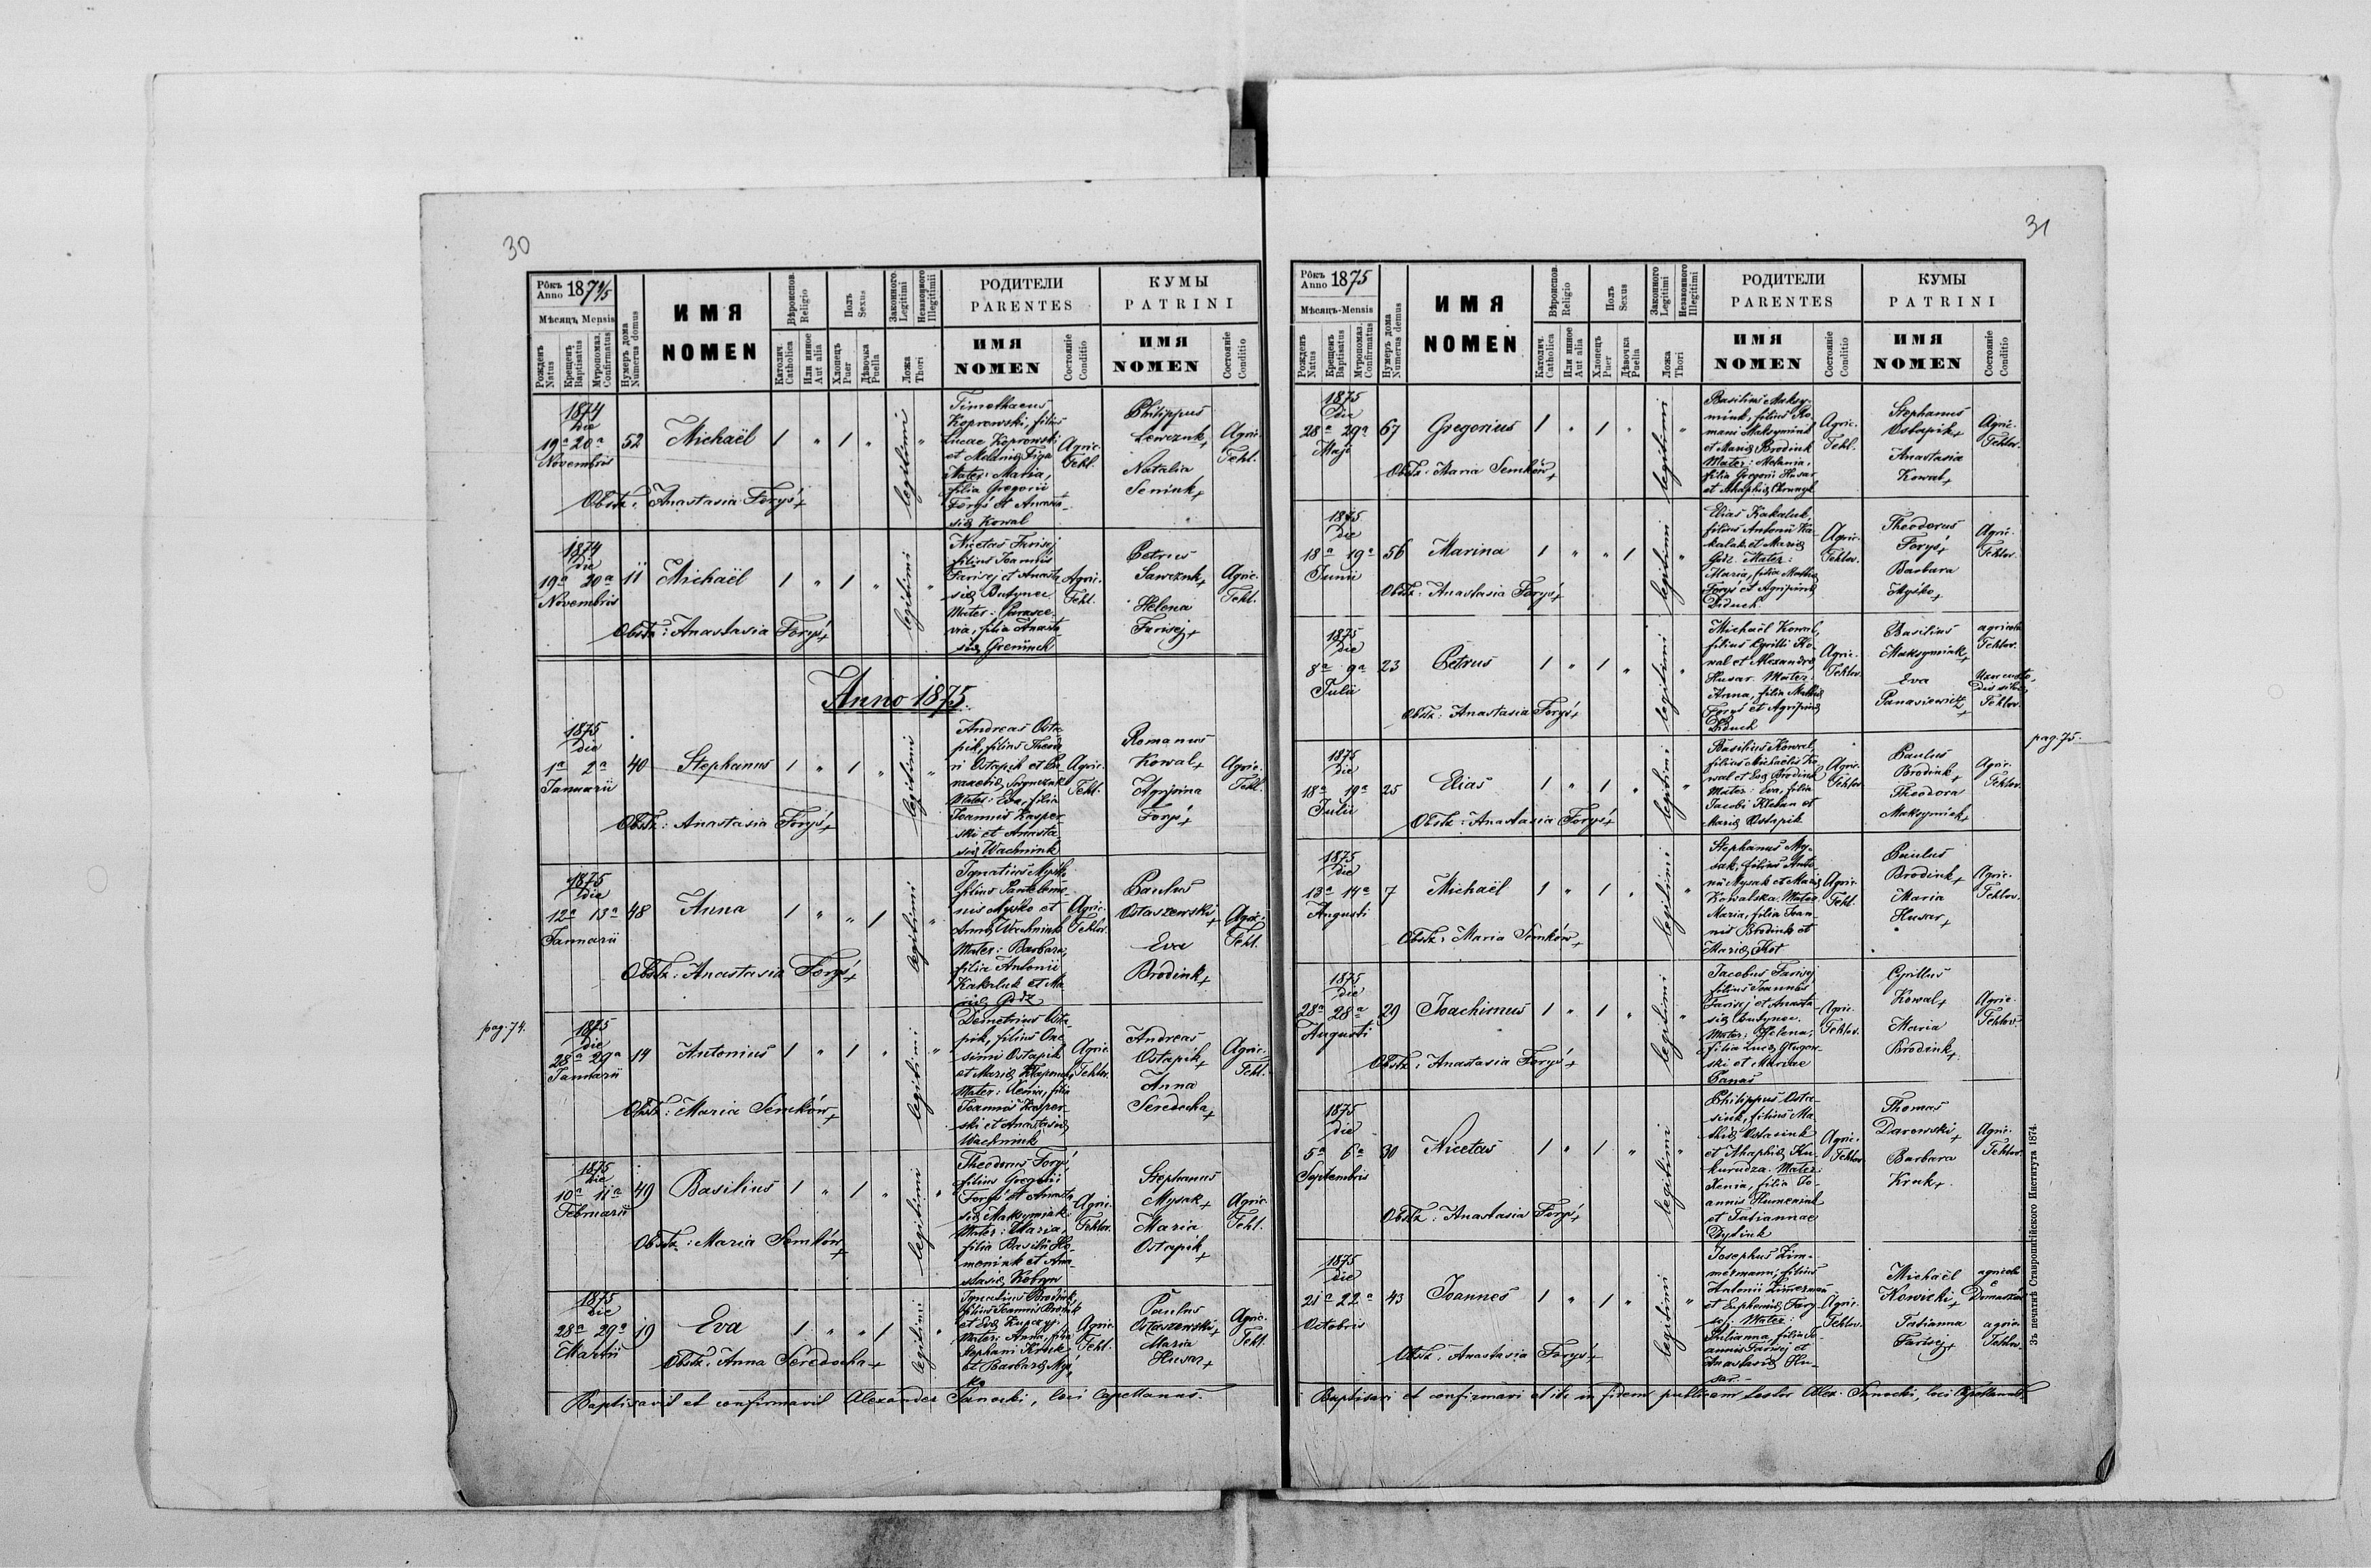 30
Рôкъ
Anno 1874/5
Мѣсяцъ Mensis
Рожденъ
Natus
Крещенъ
Baptisatus
Мѵропомаз.
Confirmatus
Нумеръ дома
Numerus domus
ИМЯ
NOMEN
Вѣроиспов.
Religio
Католич.
Catholica
Или инное
Aut alia
Полъ
Sexus
Хлопецъ
Puer
Дѣвочка
Puella
Законного
Legitimi
Незаконного
Illegitimii
Ложа
Thori
РОДИТЕЛИ
PARENTES
ИМЯ
NOMEN
Состояніе
Conditio
КУМЫ
PATRINI
ИМЯ
NOMEN
Состояніе
Conditio
1874
Die
19a 20a
Novembris
52
Michaël
1 " 1 "
legitimi
"
Timothaeus
Koprowski, filius
Lucae Koprowski
et Melaniae
Mater: Maria,
filia Gregorii
Foryś et Anasta-
siae Kowal
Agric.
Tehl.
Philippus
Lewczuk +
Natalia
Seniuk +
Agric.
Tehl.
Obstz: Anastasia Foryś +
1874
Die
19a 20a
Novembris
11
Michaël
1 " 1 "
legitimi
"
Nicetas Farisej
filius Joannis
Farisej et Anasta
siae Butynec
Mater: Parasce-
via, filia Anasta
siae
Agric.
Tehl.
Petrus
Sawczuk +
Helena
Farisej +
Agric.
Tehl.
Obstz: Anastasia Foryś +
Anno 1875.
1875
Die
1a 2a
Januarii
40
Stephanus
1 " 1 "
legitimi
"
Andreas Osta
pik, filius Theodo
ri Ostapik et
Mater: Eva, filia
Joannis Kasper
ski et Anasta-
siae Wachniuk
Agric.
Tehl.
Romanus
Kowal +
Agripina
Foryś +
Agric.
Tehl.
Obstz: Anastasia Foryś +
1875
Die
12a 13a
Januarii
48
Anna
1 " " 1
legitimi
"
Ignatius Myśko
filius Pantelemo
nis Myśko et
Annae Wachniuk
Mater: Barbara,
filia Antonii
Kakaluk et Ma
riae Godz
Agric.
Tehlov.
Paulus
Ostaszewski +
Eva
Brodiuk +
Agric.
Tehl.
Obstz: Anastasia Foryś +
pag. 74.
1875
Die
28a 29a
Januarii
14
Antonius
1 " 1 "
legitimi
"
Demetrius Osta-
pik, filius One
simi Ostapik
et Mariae
Mater: Xenia, filia
Joannis Kasper-
ski et Anastasiae
Wachniuk
Agric.
Tehlov.
Andreas
Ostapik +
Anna
Seredocha +
Agric.
Tehl.
Obstz: Maria Semków +
1875
Die
10a 11a
Februarii
49
Basilius
1 " 1 "
legitimi
"
Theodorus Foryś,
filius Gregorii
Foryś et Anasta
siae Maksymiak.
Mater: Maria,
filia Basilii Ho-
meniuk et Ana-
stasiae Kobryn
Agric.
Tehlov.
Stephanus
Mysak +
Maria
Ostapik +
Agric.
Tehl.
Obstz: Maria Semków +
1875
Die
28a 29a
Martii
19
Eva
1 " " 1
legitimi
"
Ignatius Brodiuk,
filius Joannis Brodiuk
et Evae
Mater: Anna, filia
Stephani Kruk
et Barbarae Myś-
ko
Agric.
Tehl.
Paulus
Ostaszewski +
Maria
Husar +
Agric.
Tehl.
Obstz: Anna Seredocha +
Baptisavit et confirmavit Alexander Sanocki, loci Capellanus.
31
Рôкъ
Anno 1875
Мѣсяцъ-Mensis
Рожденъ
Natus
Крещенъ
Baptisatus
Мѵропомаз.
Confirmatus
Нумеръ дома
Numerus domus
ИМЯ
NOMEN
Вѣроиспов.
Religio
Католич.
Catholica
Или инное
Aut alia
Полъ
Sexus
Хлопецъ
Puer
Дѣвочка
Puella
Законного
Legitimi
Незаконного
Illegitimi
Ложа
Thori
РОДИТЕЛИ
PARENTES
ИМЯ
NOMEN
Состояніе
Conditio
КУМЫ
PATRINI
ИМЯ
NOMEN
Состояніе
Conditio
1875
Die
28a 29a
Maji
67
Gregorius
1 " 1 "
legitimi
"
Basilius Maksy-
miuk, filius Ro-
mani Maksymiuk
et Mariae Brodiuk
Mater: Melania,
filia Gregorii Husar
et Ahaphiae
Agric.
Tehl.
Stephanus
Ostapik +
Anastasia
Kowal +
Agric.
Tehlov.
Obstz: Maria Semków +
1875
Die
18a 19a
Junii
56
Marina
1 " " 1
legitimi
"
Elias Kakaluk,
filius Antonii Ka-
kaluk et Mariae
Godz. Mater:
Maria, filia Mathiae
Foryś et Agripinae
Diduch
Agric.
Tehlov.
Theodorus
Foryś +
Barbara
Myśko +
Agric.
Tehlov.
Obstz: Anastasia Foryś +
1875
Die
8a 9a
Julii
23
Petrus
1 " 1 "
legitimi
"
Michaël Kowal,
filius Cyrilli Ko-
wal et Alexandrae
Husar. Mater:
Anna, filia Mathiae
Foryś et Agripinae
Diduch
Agric.
Tehlov.
Basilius
Maksymiuk +
Eva
Panasiewicz +
agricola
Tehlov.
Uxor custo-
dis silvae
Tehlov.
Obstz: Anastasia Foryś +
pag. 75.
1875
Die
18a 19a
Julii
25
Elias
1 " 1 "
legitimi
"
Basilius Kowal,
filius Michaëlis Ko
wal et Evae Brodiuk
Mater: Eva, filia
Jacobi Kleban et
Mariae Ostapik
Agric.
Tehlov.
Paulus
Brodiuk +
Theodora
Maksymiuk +
Agric.
Tehlov.
Obstz: Anastasia Foryś +
1875
Die
13a 14a
Augusti
7
Michaël
1 " 1 "
legitimi
"
Stephanus My-
sak, filius Anto
nii Mysak et Mariae
Kowalska. Mater:
Maria, filia Joan-
nis Brodiuk et
Mariae Kot
Agric.
Tehl.
Paulus
Brodiuk +
Maria
Husar +
Agric.
Tehlov.
Obstz: Maria Semków +
1875
Die
28a 28a
Augusti
29
Joachimus
1 " 1 "
legitimi
"
Jacobus Farisej
filius Joannis
Farisej et Anasta
siae Butynec.
Mater: Helena,
filia Lucae
ski et Mariae
Panas
Agric.
Tehlov.
Cyrillus
Kowal +
Maria
Brodiuk +
Agric.
Tehlov.
Obstz: Anastasia Foryś +
1875
die
5a 6a
Septembris
30
Nicetas
1 " 1 "
legitimi
"
Philippus Osta-
siuk, filius Ma
thiae Ostasiuk
et Ahaphiae Ku-
kurudza. Mater:
Xenia, filia Jo-
annis Humeniuk
et Tatiannae
Dydiuk
Agric.
Tehlov.
Thomas
Darowski +
Barbara
Kruk +
Agric.
Tehlov.
Obstz: Anastasia Foryś +
1875
Die
21a 22a
Octobris
43
Joannes
1 " 1 "
legitimi
"
Josephus Zim-
mermann, filius
Antonii Zimerman
et Euphemiae Fary-
sej. Mater:
Julianna, filia Jo-
annis Farisej et
Anastasiae Hu-
sar.
Agric.
Tehlov.
Michaël
Nowicki +
Tatianna
Farisej +
agricola
e
agric.
Tehlov.
Obstz: Anastasia Foryś +
Baptisavi et confirmavi et in fidem publicam testor Alex. Sanocki, loci Capellanus.
Зъ печатнѣ Ставропигійского Института 1874.